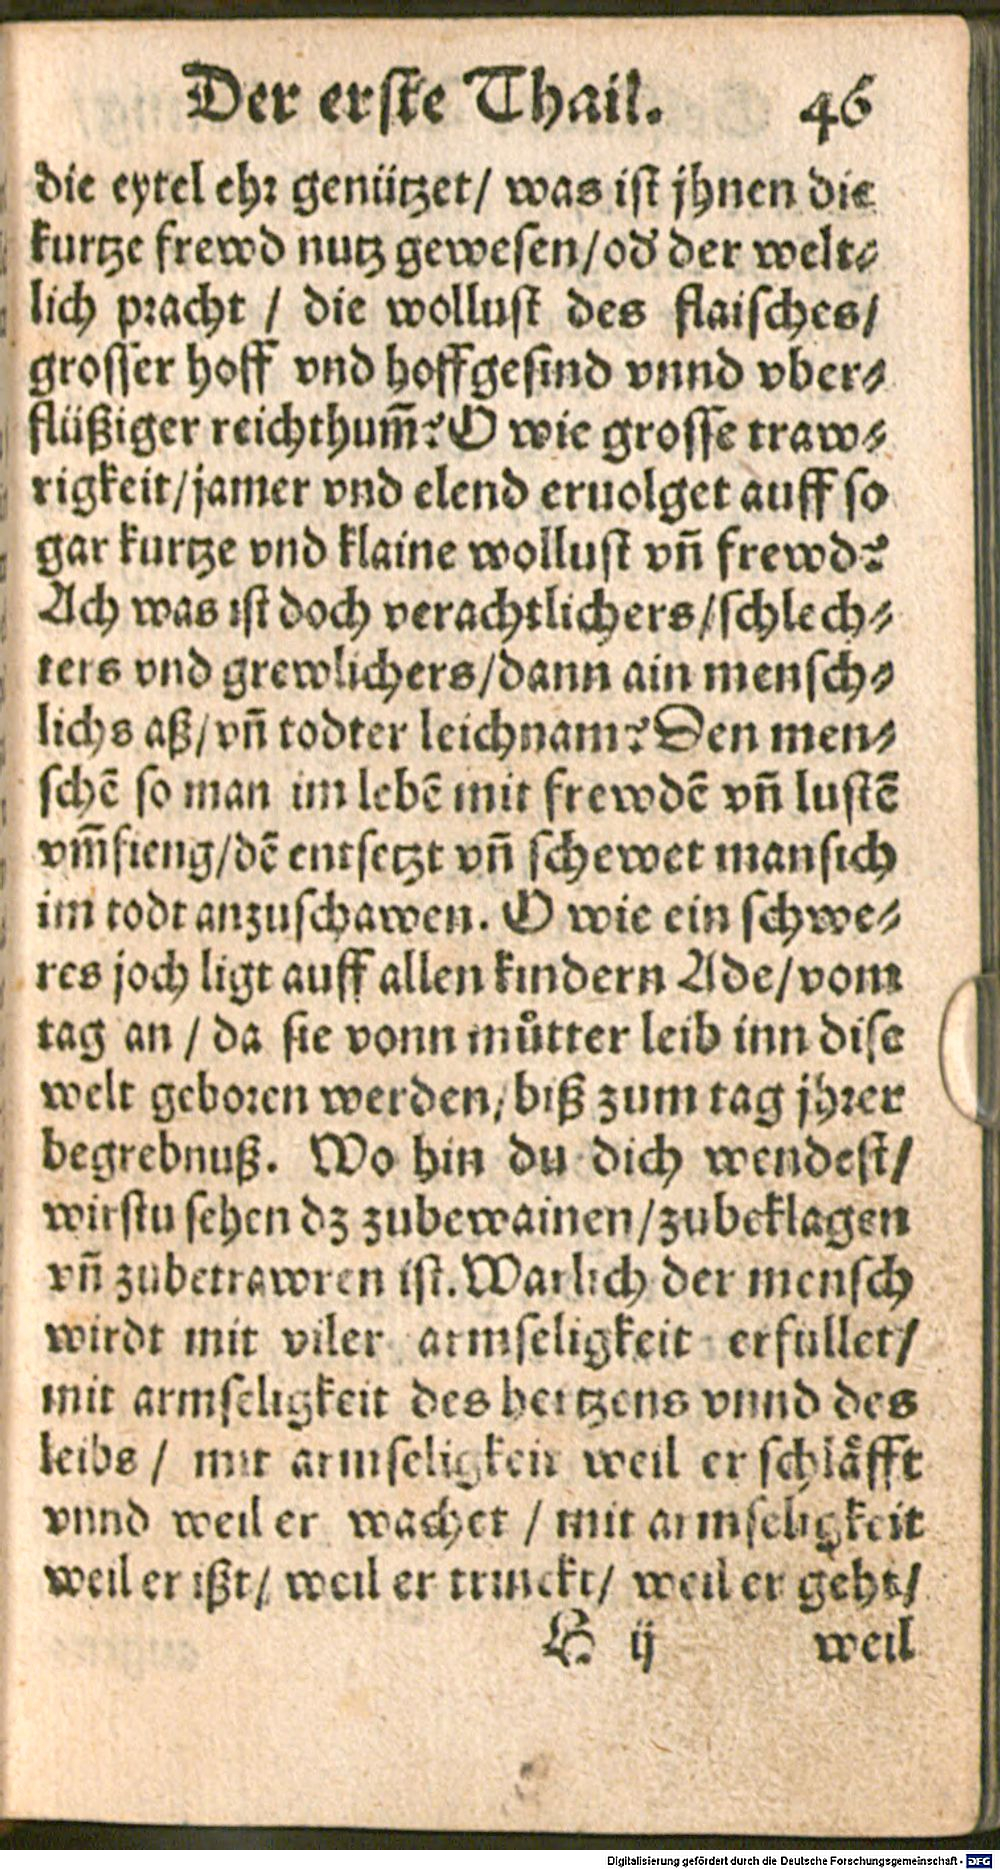 Der erste Thail. 46
die eytel ehr genützet/ was ist jhnen die
kurtze frewd nutz gewesen/od' der welt⸗
lich pracht / die wollust des flaisches/
grosser hoff vnd hoffgesind vnnd vber⸗
flüßiger reichthum̃? O wie grosse traw⸗
rigkeit/jamer vnd elend eruolget auff so
gar kurtze vnd klaine wollust vñ frewd?
Ach was ist doch verachtlichers/schlech⸗
ters vnd grewlichers/dann ain mensch⸗
lichs aß/vñ todter leichnam? Den men⸗
schē so man im lebē mit frewdē vñ lustē
vm̃fieng/dē entsetzt vñ schewet man sich
im todt anzuschawen. O wie ein schwe⸗
res joch ligt auff allen kindern Ade/vom
tag an / da sie vonn můtter leib inn dise
welt geboren werden/biß zum tag jhrer
begrebnuß. Wo hin du dich wendest/
wirstu sehen dz zubewainen/zubeklagen
vñ zubetrawren ist. Warlich der mensch
wirdt mit viler armseligkeit erfullet/
mit armseligkeit des hertzens vnnd des
leibs / mit armseligkeit weil er schlåfft
vnnd weil er wachet / mit armseligkeit
weil er ißt/ weil er trinckt/ weil er geht/
H ij weil
Digitalisierung gefördert durch die Deutsche Forschungsgemeinschaft - DFG